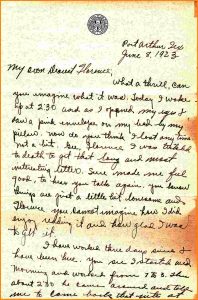 Port Arthur Tex
June 8, 1923
My own Dearest Florence,
What a thrill, can
you imagine what it was. Today I woke
up at 2:30 and as I opened my eyes I
saw a pink envelope on my bed by my
pillow. now do you think I lost any time
not a bit. Gee, Florence I was tickled
to death to get that long and most
interesting letter. Sure made me feel
good, to hear you talk again. you know
things are just a little bit lonesome and
Florence you cannot imagine how I did
enjoy reading it and how glad I was
to get it.
I have worked three days since I
have been here. You see I started
morning and worked from 7 &
about 2:30 he came around and told
me to come back that